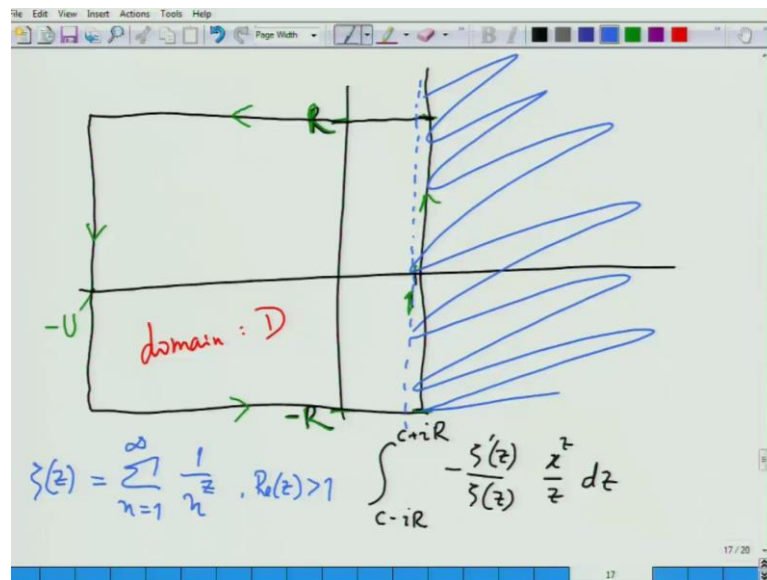 File Edit View Insert Actions Tools Help
Page Width
B I
R
-U
domain : D
-R
ζ(z) = ∑_{n=1}^{∞} 1/n^z , Re(z)>1
∫_{c-iR}^{c+iR} - ζ'(z)/ζ(z) x^z/z dz
17 / 20
17